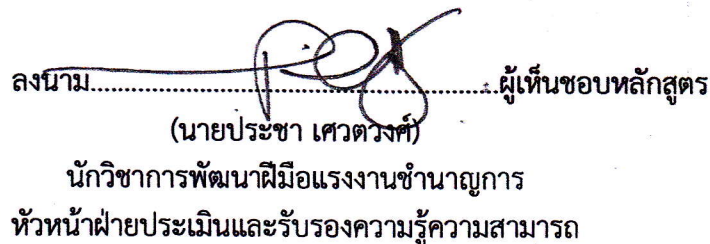 ลงนาม.....................................................................ผู้เห็นชอบหลักสูตร
(นายประชา เศวตวงศ์)
นักวิชาการพัฒนาฝีมือแรงงานชำนาญการ
หัวหน้าฝ่ายประเมินและรับรองความรู้ความสามารถ